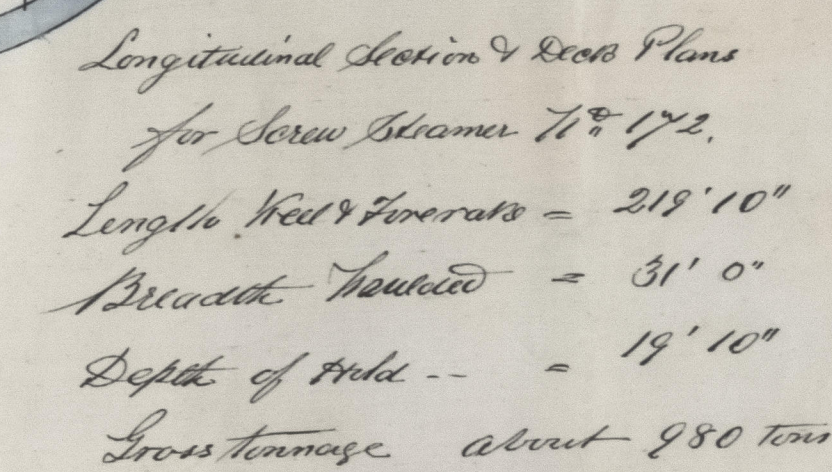 Longitudinal Section & Deck Plans
for Screw Steamer No 172.
Length Keel & Forerake = 219' 10"
Breadth Moulded = 31' 0"
Depth of Hold -- = 19' 10"
Gross tonnage about 980 tons